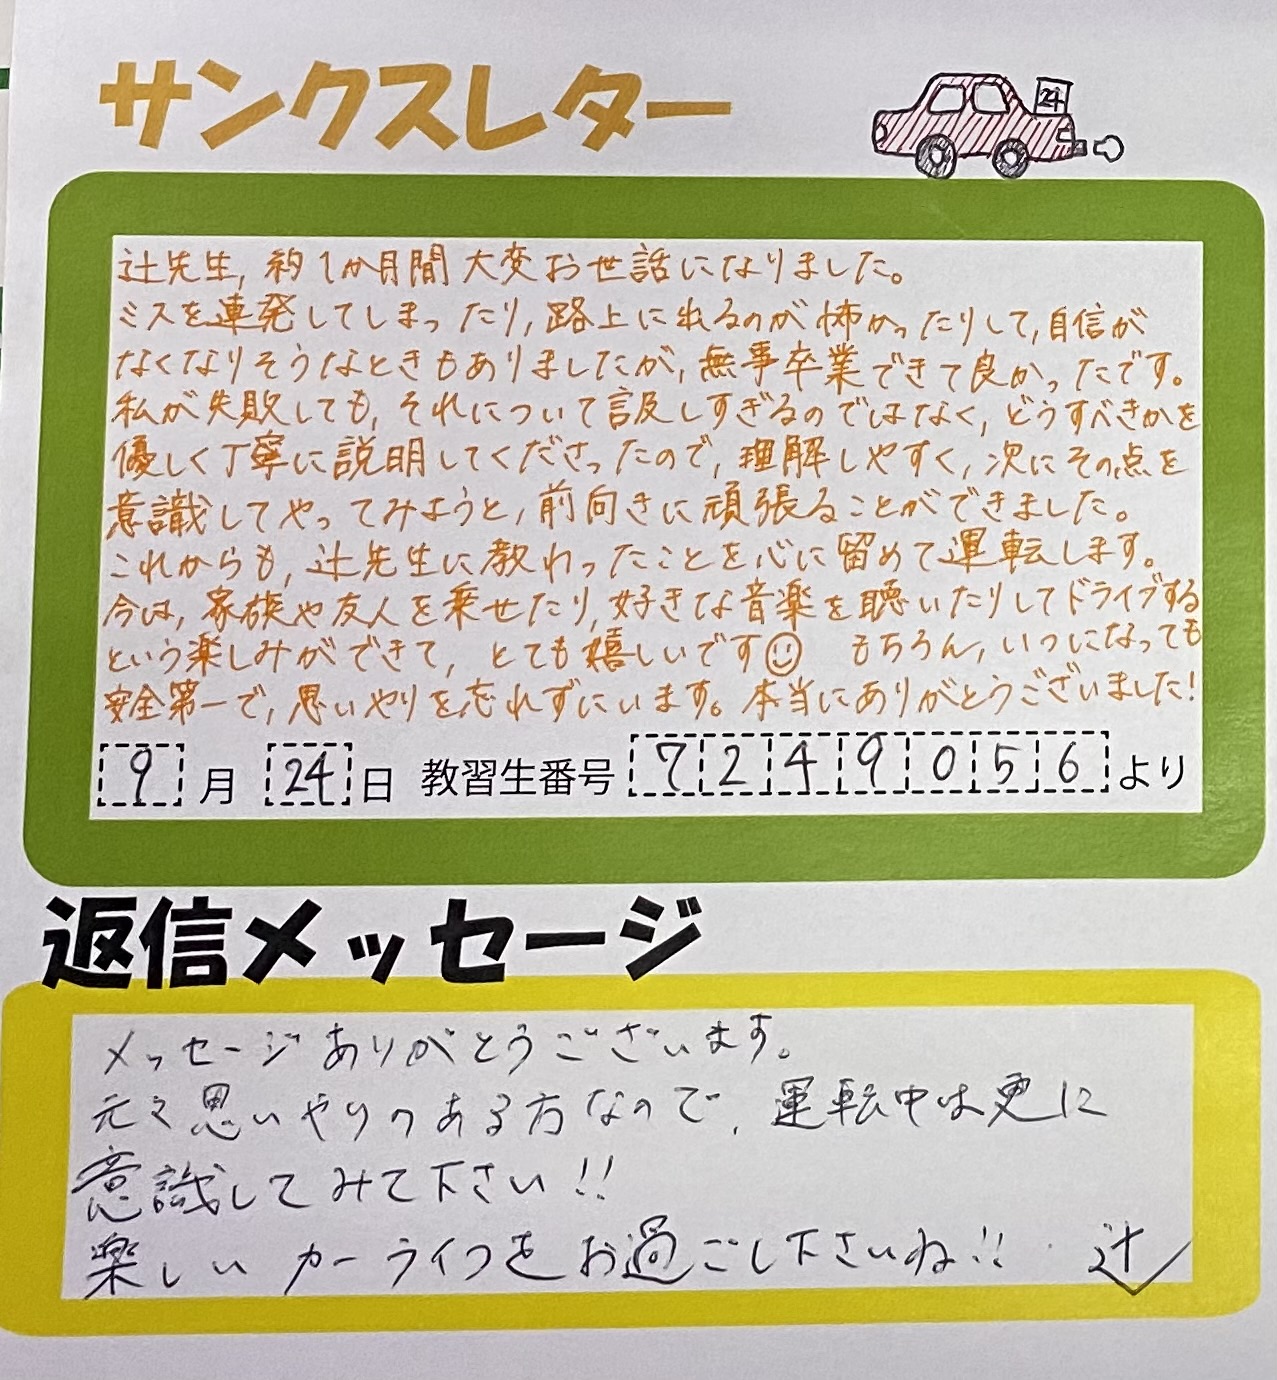 サンクスレター
24
辻先生, 約1か月間 大変お世話になりました。
ミスを連発してしまったり, 路上に出るのが怖かったりして, 自信が
なくなりそうなときもありましたが, 無事卒業できて良かったです。
私が失敗しても, それについて言及しすぎるのではなく, どうすべきかを
優しく丁寧に説明してくださったので, 理解しやすく, 次にその点を
意識してやってみようと, 前向きに頑張ることができました。
これからも, 辻先生に教わったことを心に留めて運転します。
今は, 家族や友人を乗せたり, 好きな音楽を聴いたりしてドライブする
という楽しみができて, とても嬉しいです☺ もちろん, いつになっても
安全第一で, 思いやりを忘れずにいます。本当にありがとうございました!
9月 24日 教習生番号 7249056より
返信メッセージ
メッセージありがとうございます。
元々思いやりのある方なので, 運転中は更に
意識してみて下さい!!
楽しいカーライフをお過ごし下さいね!! 辻